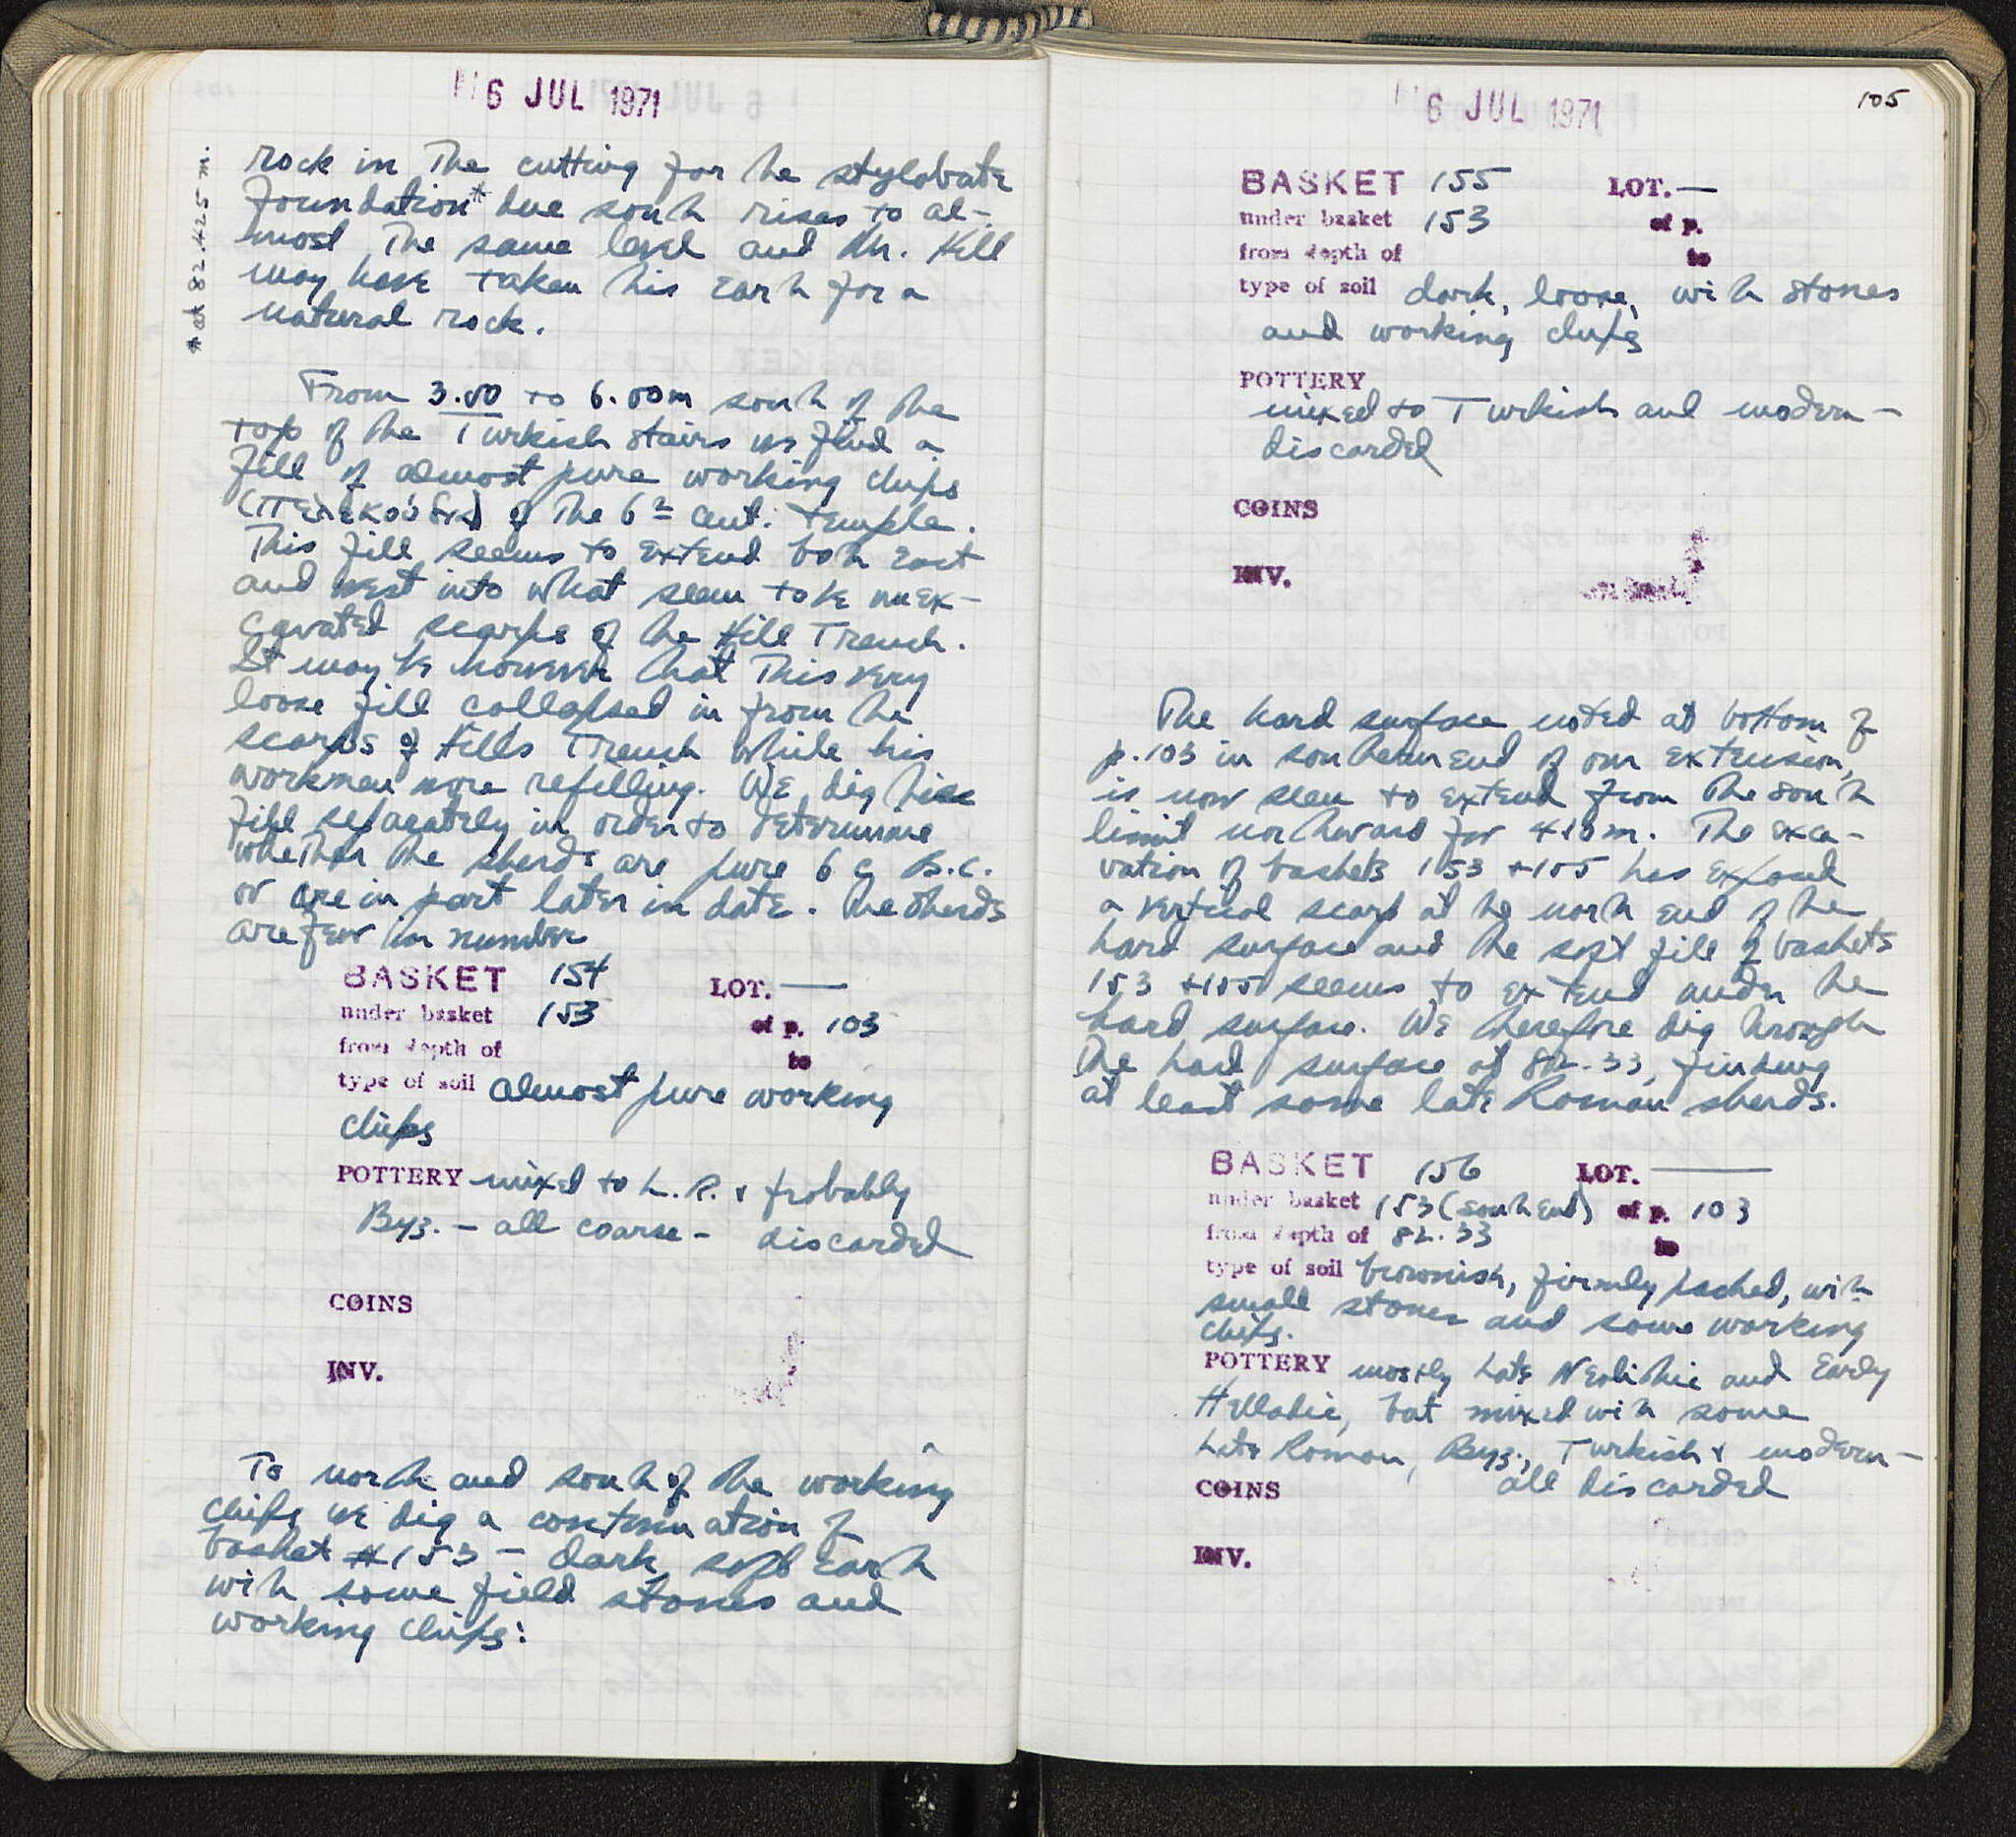 6 JUL 1971
* at 82.425 m.
rock in the cutting for the stylobate
foundation* due south rises to al-
most the same level and Mr. Hill
may have taken this earth for a
natural rock.
From 3.50 to 6.00m south of the
top of the Turkish stairs we find a
fill of almost pure working chips
of the 6th cent. temple.
This fill seems to extend both east
and west into what seem to be unex-
cavated scarps of the Hill Trench.
It may be however that this very
loose fill collapsed in from the
scarps of Hill's Trench while his
workmen were refilling. We dig this
fill separately in order to determine
whether the sherds are pure 6 c B.C.
or are in part later in date. The sherds
are few in number
BASKET 154 LOT. —
under basket 153 of p. 103
from depth of to
type of soil almost pure working
chips
POTTERY mixed to L.R. & probably
Byz. - all coarse - discarded
COINS
INV.
To north and south of the working
chips we dig a continuation of
basket #153 - dark, soft earth
with some field stones and
working chips:
6 JUL 1971
105
BASKET 155 LOT. —
under basket 153 of p.
from depth of to
type of soil dark, loose, with stones
and working chips
POTTERY
mixed to Turkish and modern -
discarded
COINS
INV.
The hard surface noted at bottom of
p. 103 in southern end of our extension,
is now seen to extend from the south
limit northward for m. The exca-
vation of baskets 153 + 155 has exposed
a vertical scarp at the north end of the
hard surface and the soft fill of baskets
153 + 155 seems to extend under the
hard surface. We therefore dig through
the hard surface at 82.33, finding
at least some late Roman sherds.
BASKET 156 LOT. —
under basket 153 (south end) of p. 103
from depth of 82.33 to
type of soil brownish, firmly packed, with
small stones and some working
chips.
POTTERY mostly Late Neolithic and Early
Helladic, but mixed with some
Late Roman, Byz., Turkish & modern -
all discarded
COINS
INV.